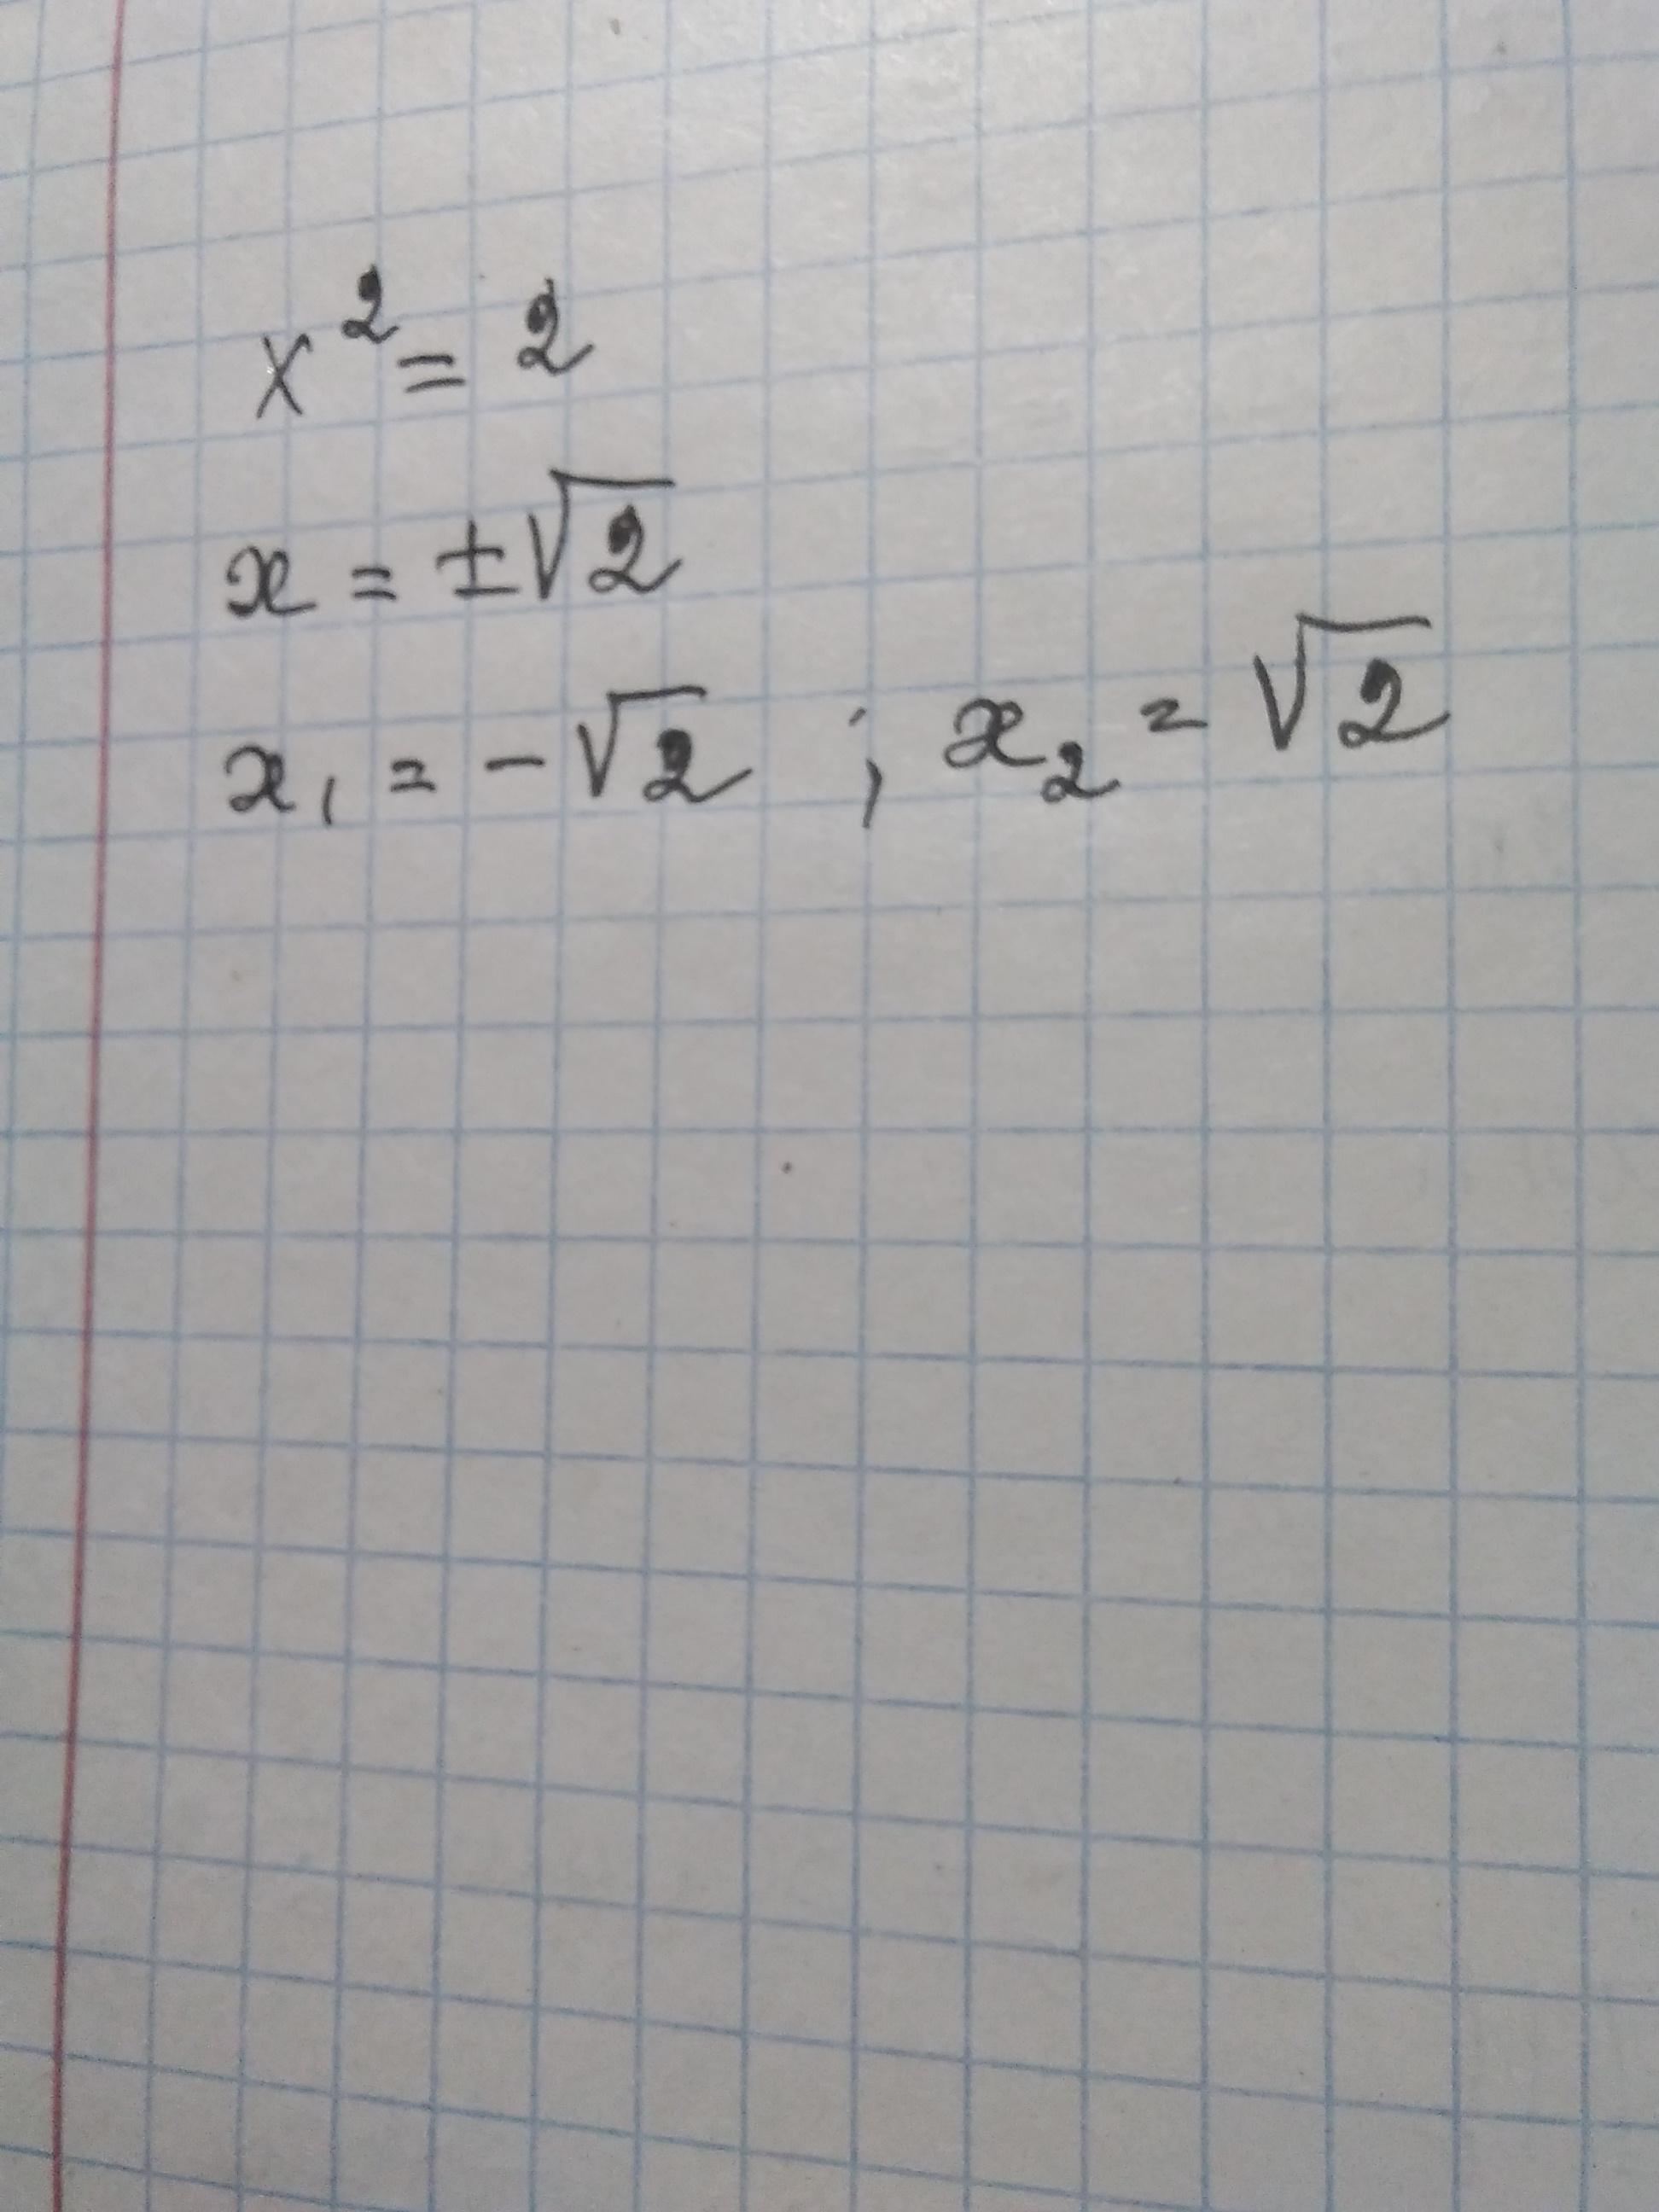 x² = 2
x = ±√2
x₁ = -√2 ; x₂ = √2